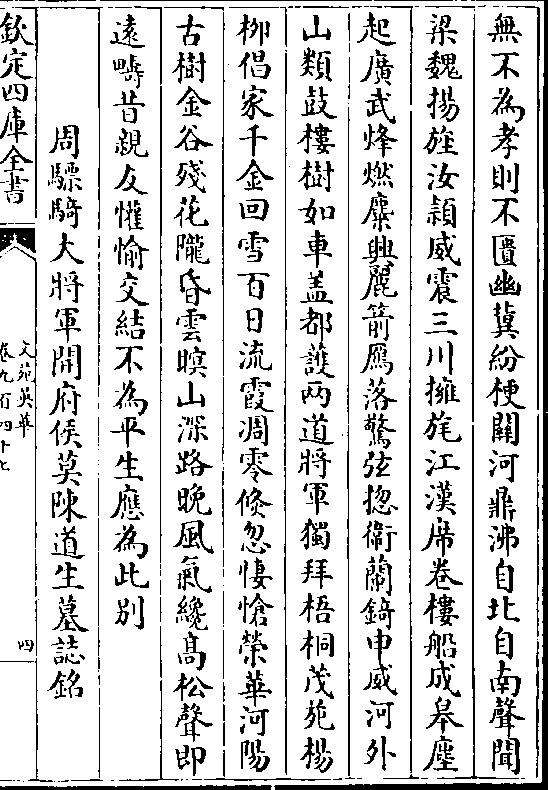 無不為孝則不匱幽冀紛梗關河鼎沸自北自南聲聞
梁魏揚旌汝潁威震三川擁旄江漢席卷樓船成臯塵
起廣武烽燃麋興麗箭鴈落驚弦揔衛蘭錡申威河外
山類鼓樓樹如車盖都護兩道將軍獨拜梧桐茂苑楊
栁倡家千金回雪百日流霞凋零倐忽悽愴榮華河陽
古樹金谷殘花隴昏雲暝山深路晚風氣纔高松聲即
逺疇昔親友懽愉交結不為平生應為此别
周驃騎大將軍開府侯莫陳道生墓誌銘
欽定四庫全書
文苑英華
卷九百四十七
四